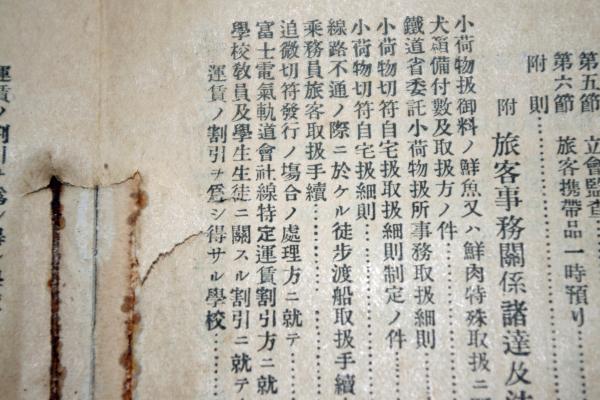 第五節 立會監査
第六節 旅客携帶品一時預リ
附則
附 旅客事務關係諸達及法
小荷物扱御料ノ鮮魚又ハ鮮肉特殊取扱ニ
犬箱備付數及取扱方ノ件
鐵道省委託小荷物扱所事務取扱細則
小荷物切符自宅扱取扱細則制定ノ件
小荷物切符自宅扱細則
線路不通ノ際ニ於ケル徒歩渡船取扱手續
乘務員旅客取扱手續
追徴切符發行ノ場合ノ處理方ニ就テ
富士電氣軌道會社線特定運賃割引方ニ就
學校敎員及學生生徒ニ關スル割引ニ就テ
運賃ノ割引ヲ爲シ得サル學校
運賃ノ割引ヲ爲シ得